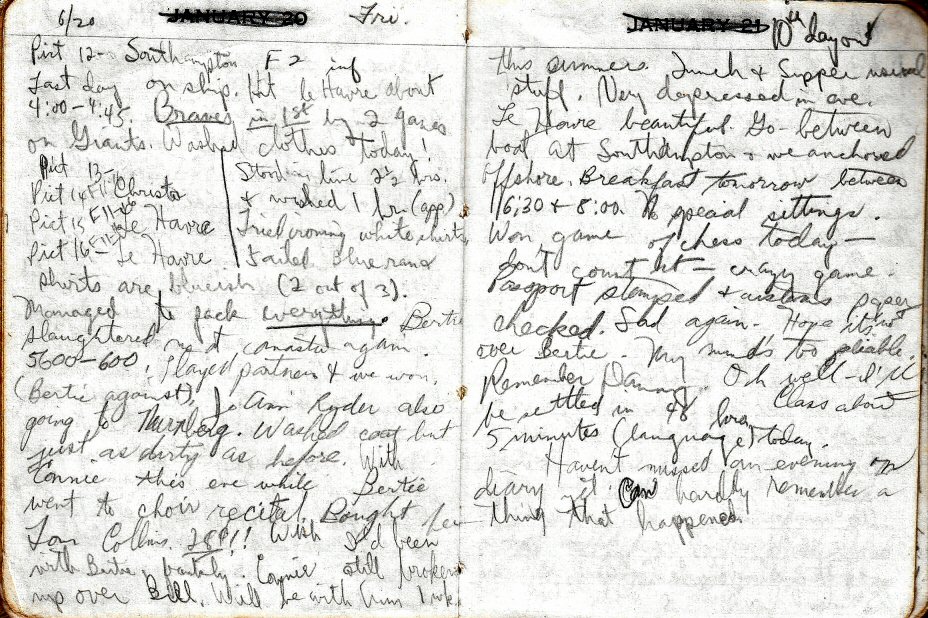 6/20 JANUARY 20 Fri.
Pict 12- Southampton F2 inf
Last day on ship. Hit Le Havre about
4:00-4:45. Braves in 1st by 2 games
on Giants. Washed clothes today!
Pict 13-
Pict 14 Christa
Pict 15 F11 Le Havre
Pict 16- F11 Le Havre
Stood in line 2½ hrs.
& washed 1 hr. (app)
Tried ironing white shirts
Failed. Blue and
shorts are blueish (2 out of 3).
Managed to pack everything. Bertie
slaughtered me at canasta again.
5600-600. Played partners & we won.
(Bertie against). Jo Ann Ryder also
going to Nurnberg. Washed coat but
just as dirty as before. With
Connie this eve while Bertie
went to choir recital. Bought her
Tom Collins. 25¢!! Wish I'd been
with Bertie, partly. Connie still broken
up over Bill. Will be with him 1 wk.
JANUARY 21 10th day out
this summer. Lunch & Supper usual
stuff. Very depressed in eve.
Le Havre beautiful. Go-between
boat at Southampton & we anchored
offshore. Breakfast tomorrow between
6:30 & 8:00. No special sittings.
Won game of chess today-
don't count it - crazy game.
Passport stamped & customs paper
checked. Sad again. Hope it's not
over Bertie. My mind's too pliable.
Remember Danny. Oh well-I'll
be settled in 48 hrs. Class about
5 minutes (language) today.
Haven't missed an evening on
diary yet. Can hardly remember a
thing that happened.